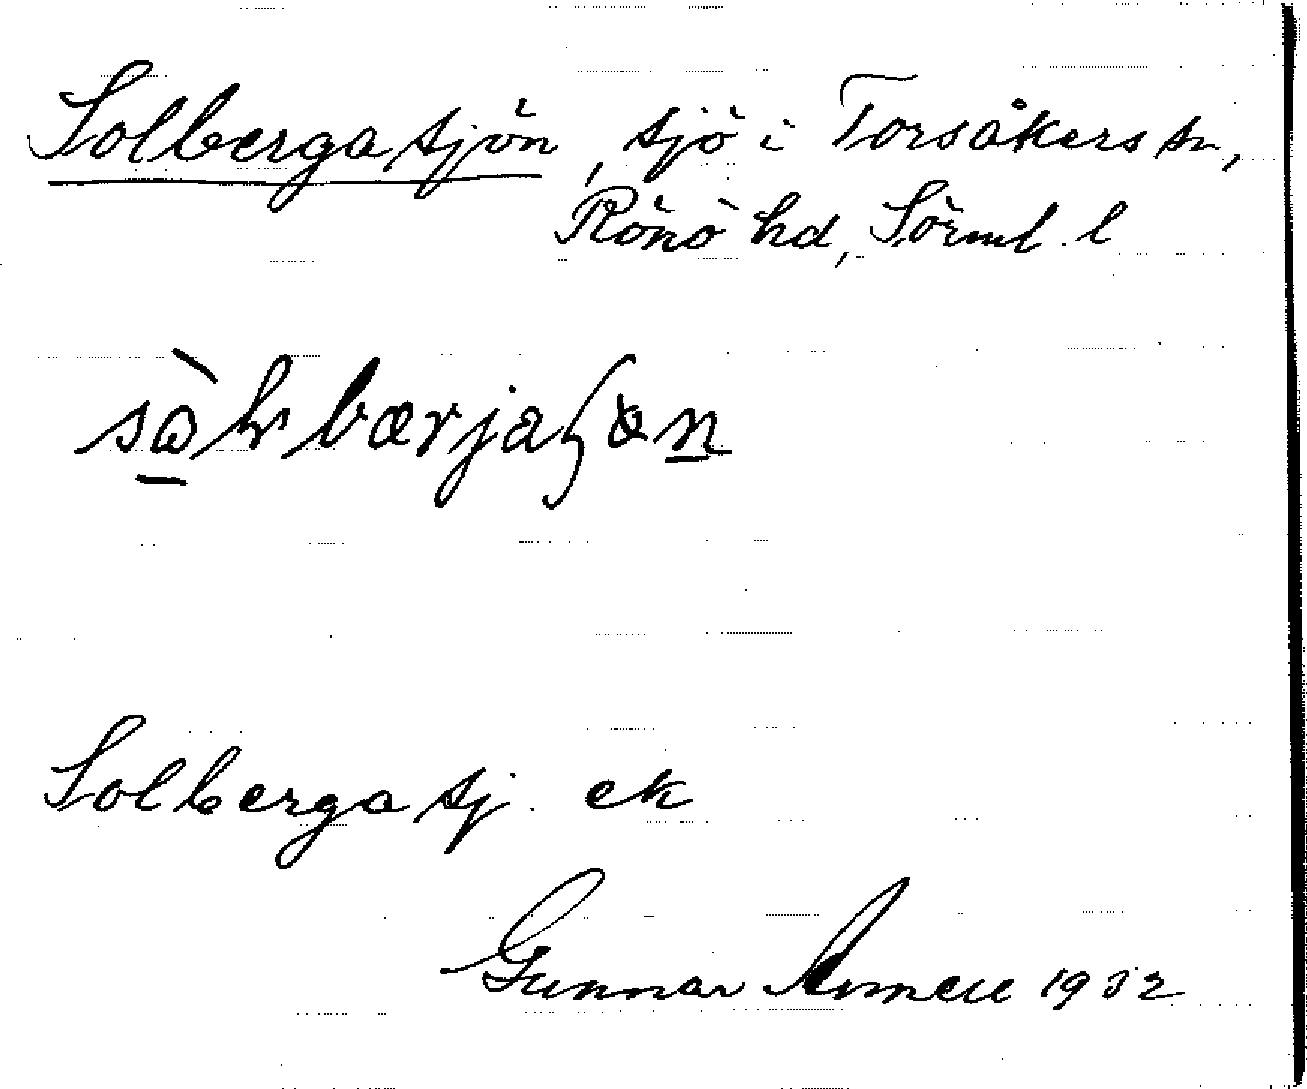 Solbergasjön, sjö i Torsåkers sn,
Rönö hd, Sörml. l
Solbergasj. ek
Gunnar 1932